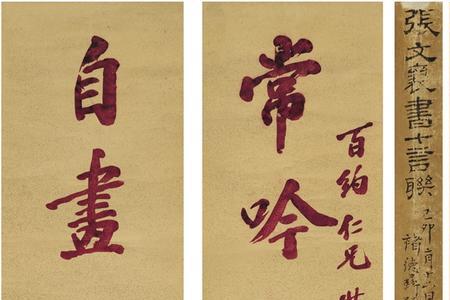 張文襄書七言聯
己卯
常吟
百约仁兄
自畫